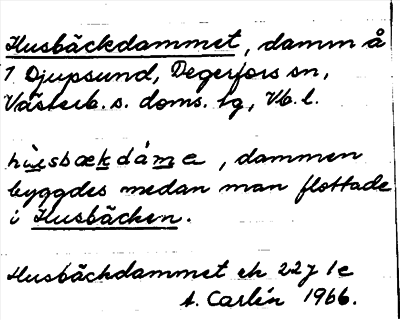 Husbäckdammet, damm å
1 Djupsund, Degerfors sn,
Västerb. s. doms. tg, Vb. l.
hu̱sbæḵdám̱e, dammen
byggdes medan man flottade
i Husbäcken.
Husbäckdammet ek 22J 1c
A. Carlín 1966.